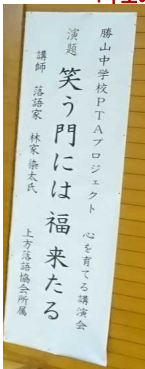 勝山中学校PTAプロジェクト　心を育てる講演会
演題　笑う門には福来たる
講師　落語家　林家染太氏
上方落語協会所属